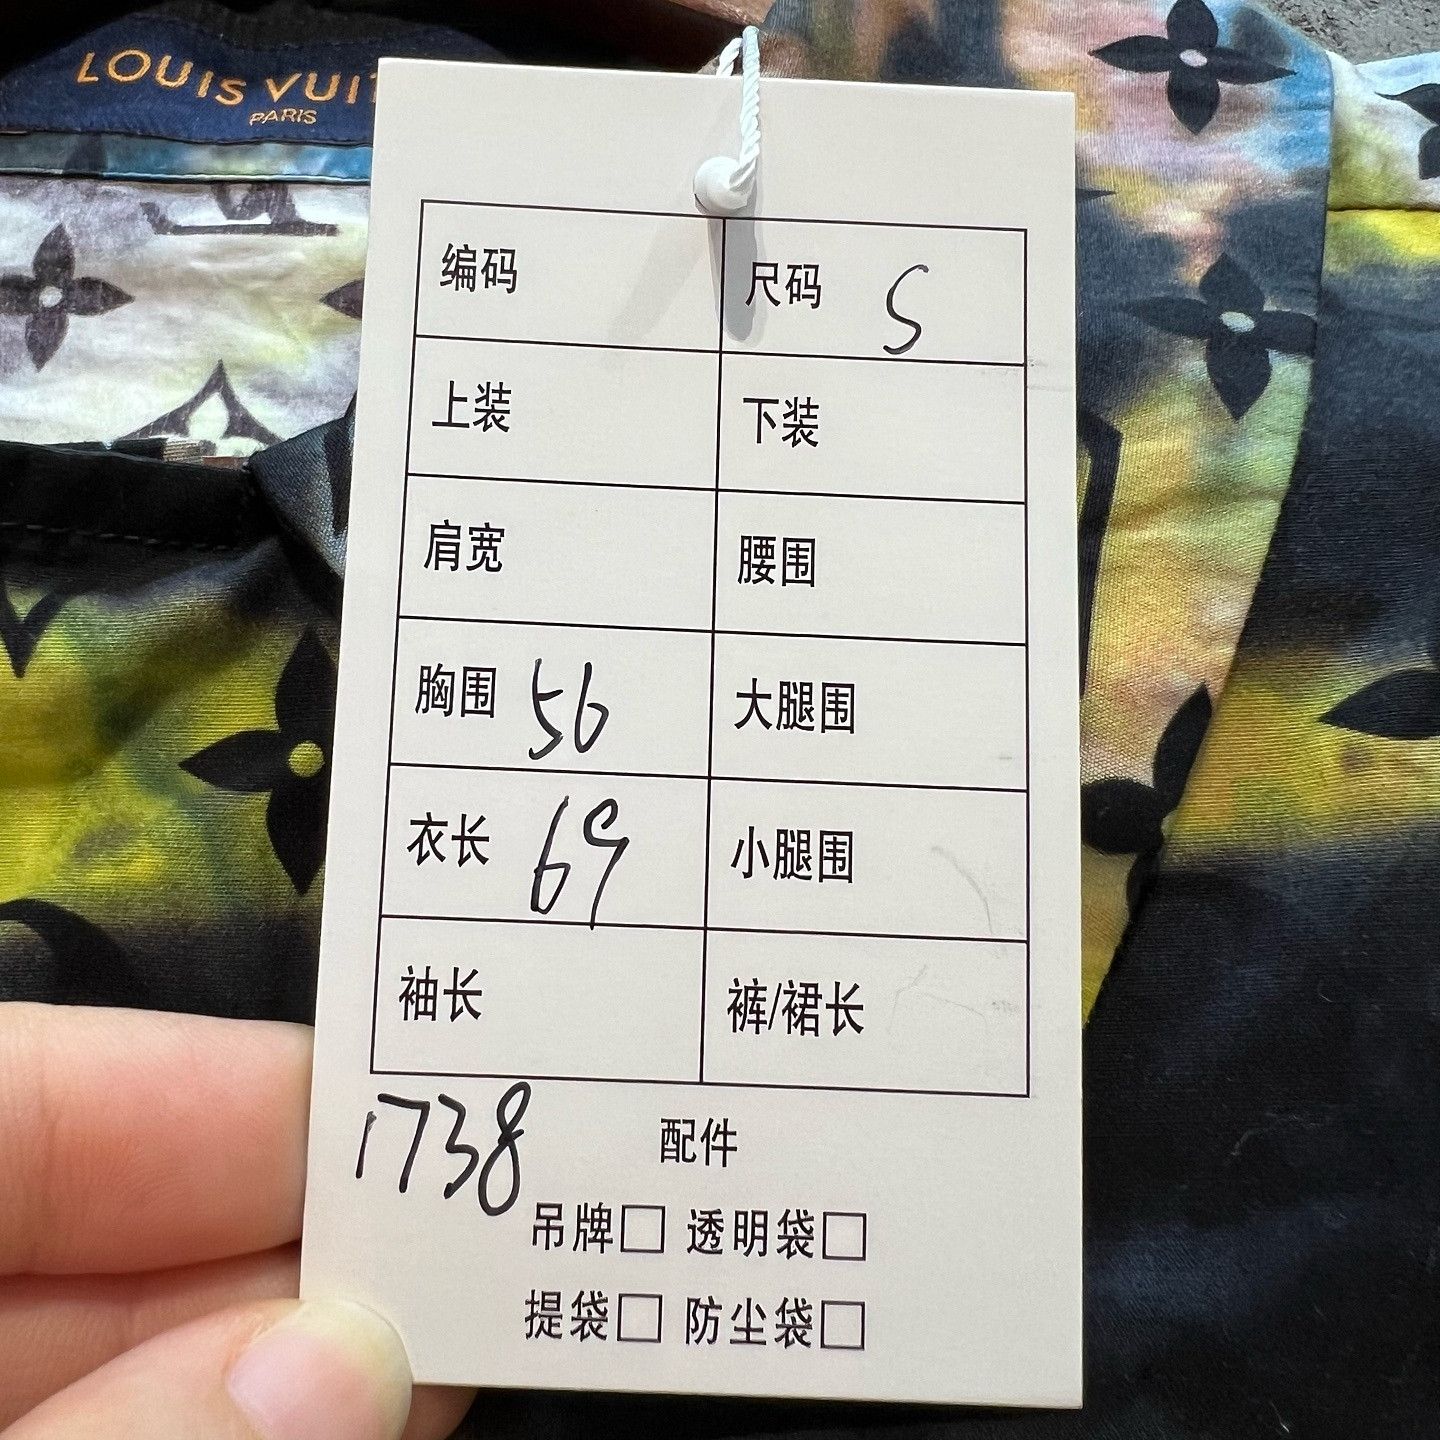 LOUIS VUIT
PARIS
编码 尺码 S
上装 下装
肩宽 腰围
胸围 56 大腿围
衣长 69 小腿围
袖长 裤/裙长
1738 配件
吊牌□ 透明袋□
提袋□ 防尘袋□